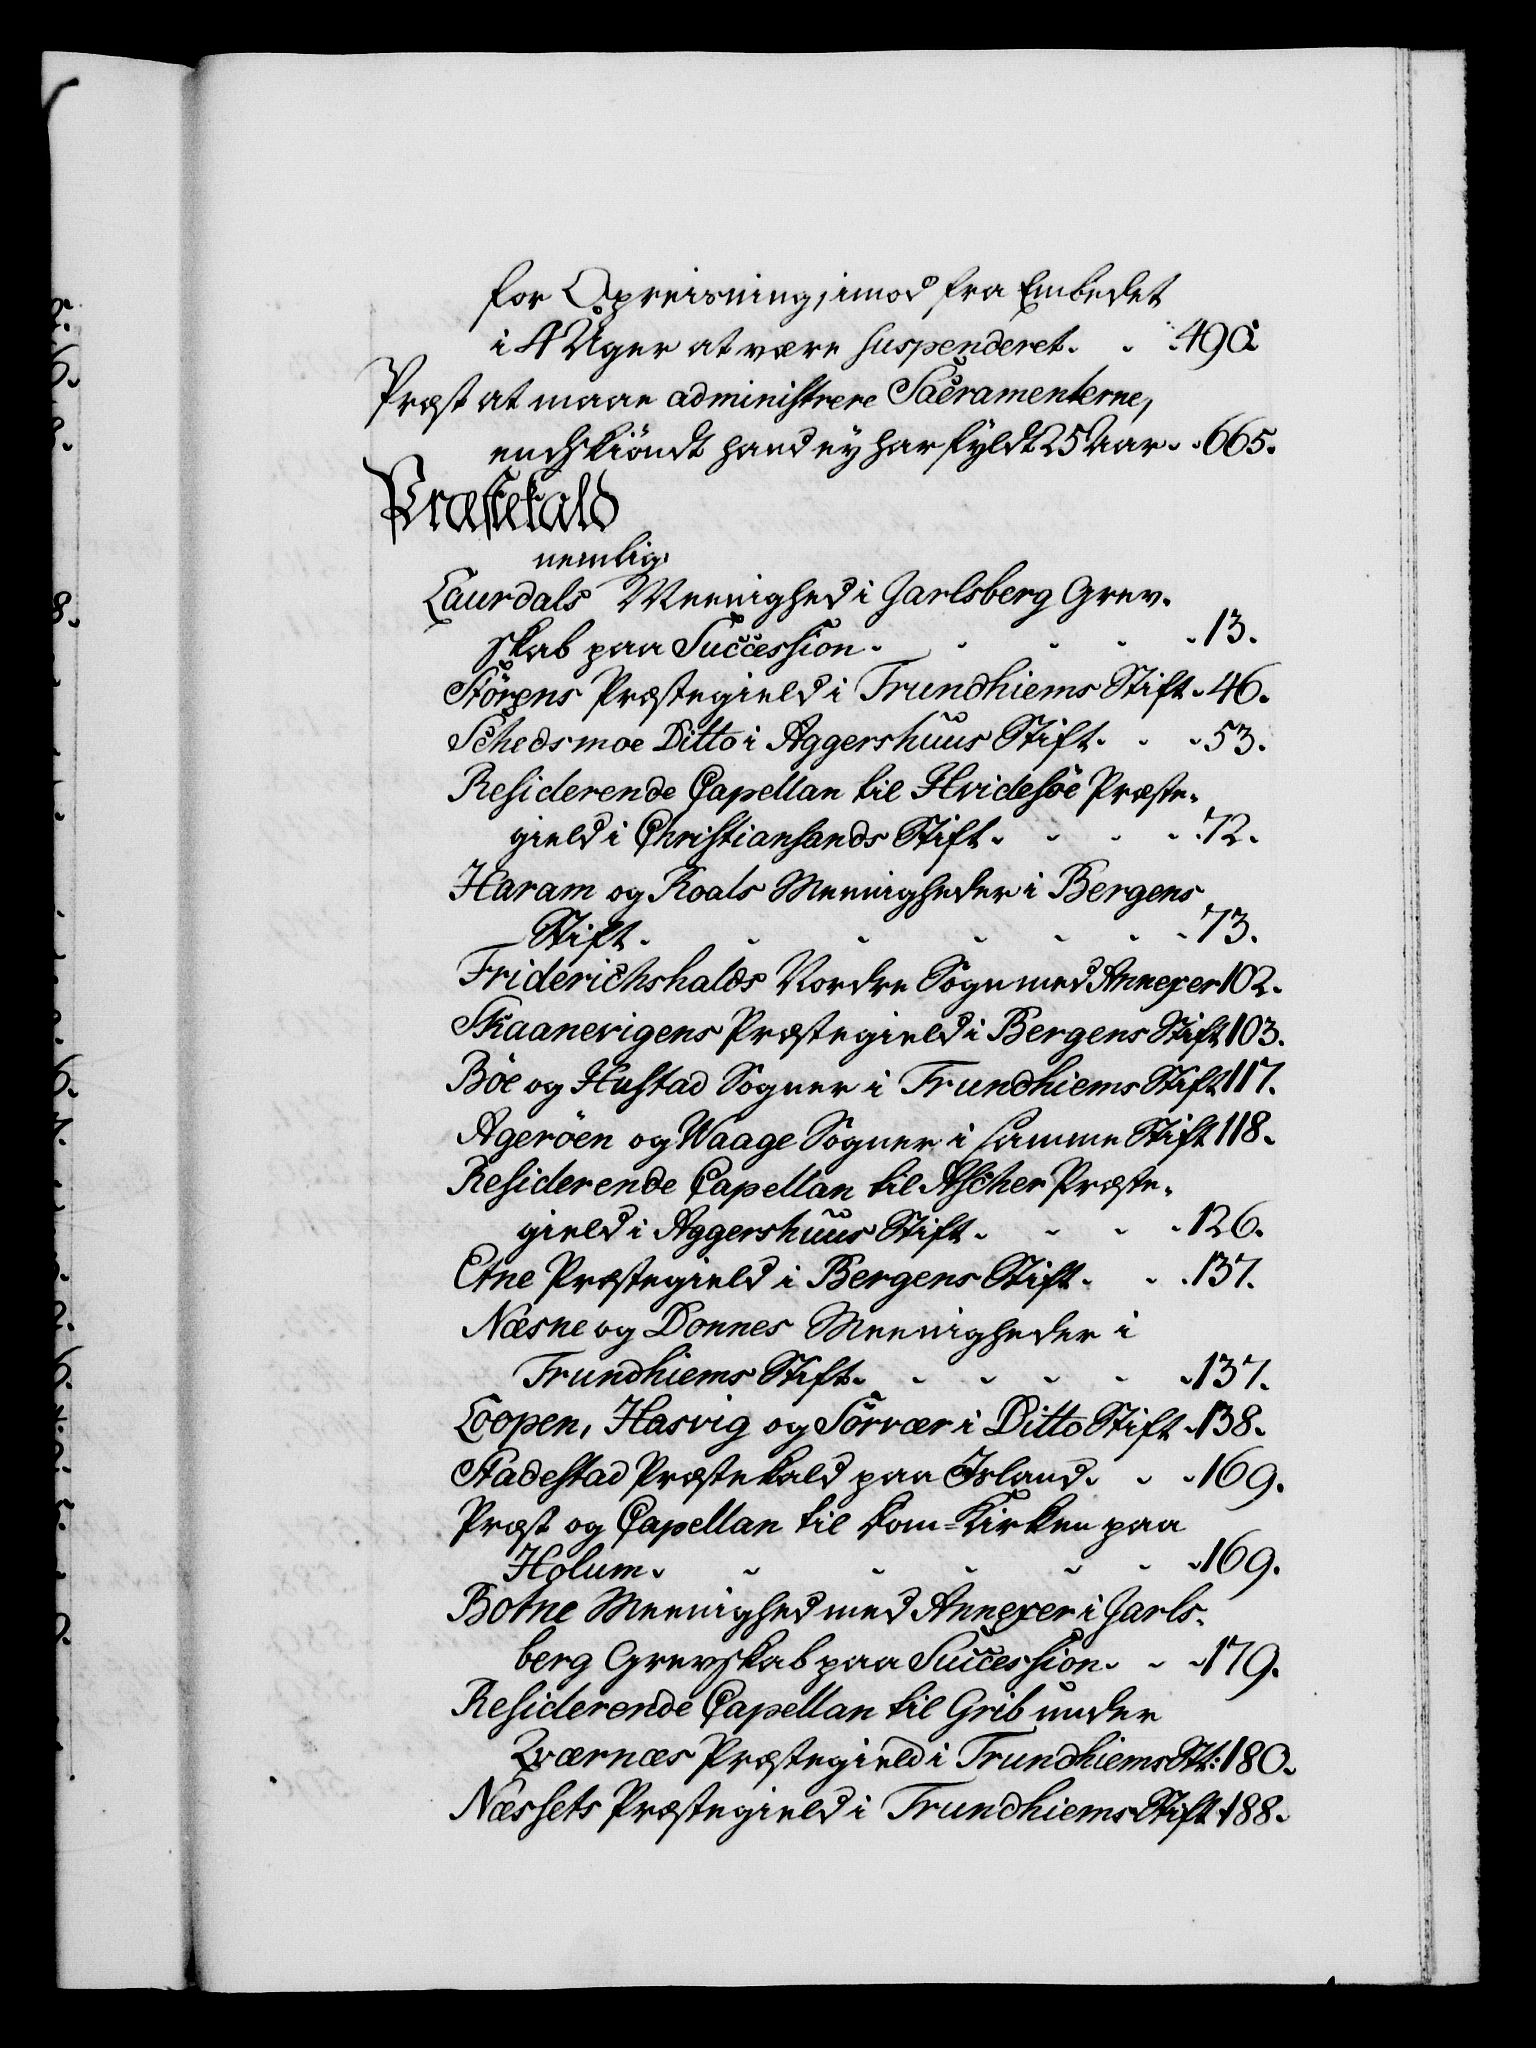 for Opreisning, imod fra Embedet
i 4 Uger at være suspenderet. . . 490.
Præst at maae administrere Sacramenterne,
endskiöndt hand ey har fyldt 25 Aar. . 665.
Præstekald
nemlig:
Laurdals Meenighed i Jarlsberg Grev-
skab paa Succession. . . . . 13.
Störens Præstegield i Trundhiems Stift. 46.
Schedsmoe Ditto i Aggershuus Stift. . . 53.
Residerende Capellan til Hvidesöe Præste-
gield i Christiansands Stift. . . . 72.
Haram og Roals Meenigheder i Bergens
Stift. . . . . . . 73.
Friderichshalds Nordre Sogn med Annexer 102.
Skaanevigens Præstegield i Bergens Stift 103.
Böe og Hustad Sogner i Trundhiems Stift 117.
Ageröen og Waage Sogner i samme Stift 118.
Residerende Capellan til Ascher Præste-
gield i Aggershuus Stift. . . . 126.
Etne Præstegield i Bergens Stift. . . 137.
Næsne og Donnes Meenigheder i
Trundhiems Stift. . . . . . 137.
Loopen, Hasvig og Sörvær i Ditto Stift. 138.
Stadestad Præstekald paa Island. . . 169.
Præst og Capellan til Dom-Kirken paa
Holum. . . . . . . 169.
Botne Meenighed med Annexer i Jarls-
berg Grevskab paa Succession. . . 179.
Residerende Capellan til Grib under
Qværnæs Præstegield i Trundhiems Stt: 180.
Næssets Præstegield i Trundhiems Stift. 188.